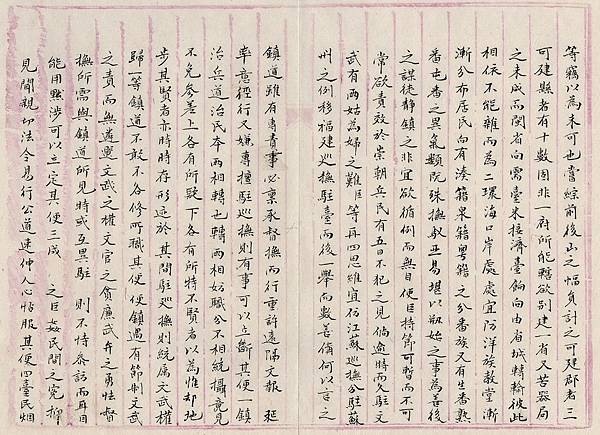 等竊以為未可也嘗綜前後山之幅員計之可建郡者三
可建縣者有十數固非一府所能轄欲別建一省又苦器局
之未成而閩省向需臺米接濟臺餉向由省城轉輸彼此
相依不能離而為二環海口岸處處宜防洋族教堂漸
漸分布居民向有漳籍泉籍粵籍之分番族又有生番熟
番屯番之異氣類既殊撫馭匪易況以創始之事為善後
之謀徒靜鎮之非宜欲循例而無自使臣持節可暫而不可
常欲責效於崇朝兵民有五日不犯之見倘逾時而久駐文
武有兩姑為婦之難臣等再四思維宜仿江蘇巡撫分駐蘇
州之例移福建巡撫駐臺而後一舉而數善備何以言之
鎮道雖有專責事必稟承督撫而行重許遠隔文報延
率意徑行又嫌專擅駐巡撫則有事可以立斷其便一鎮
治兵道治民本兩相輔也轉兩相妨職分不相統攝意見
不免參差上各有所疑下各有所恃不賢者以為推卸地
步其賢者亦時時存形迹於其間駐巡撫則統屬文武權
歸一尊鎮道不敢不各修所職其便二鎮道有節制文武
之責而無遴選文武之權文官之貪廉武弁之勇怯督
撫所聞與鎮道所見時或互異駐則不待參訪而耳目
能周黜陟可以立定其便三城之巨姦民間之冤抑
見聞親切法令易行公道速伸人心帖服其便四臺民烟